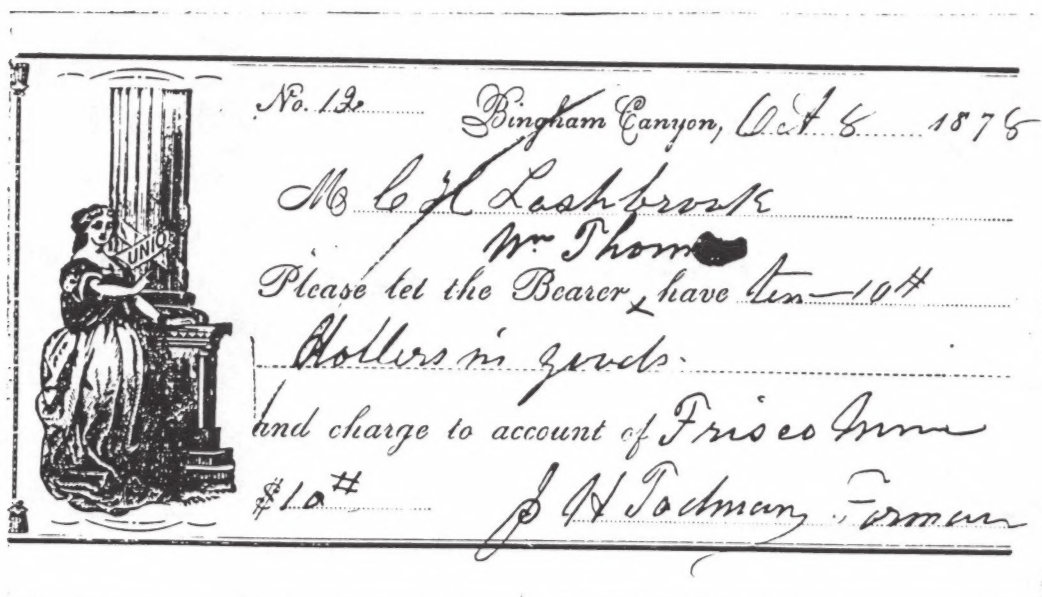 UNION
No. 12 Bingham Canyon, Oct 8 1878
Mr C H Lashbrook
Wm Thom
Please let the Bearer have ten — 10 #
Dollers in goods.
And charge to account of Frisco Mine
$10 # J H Tadman Forman